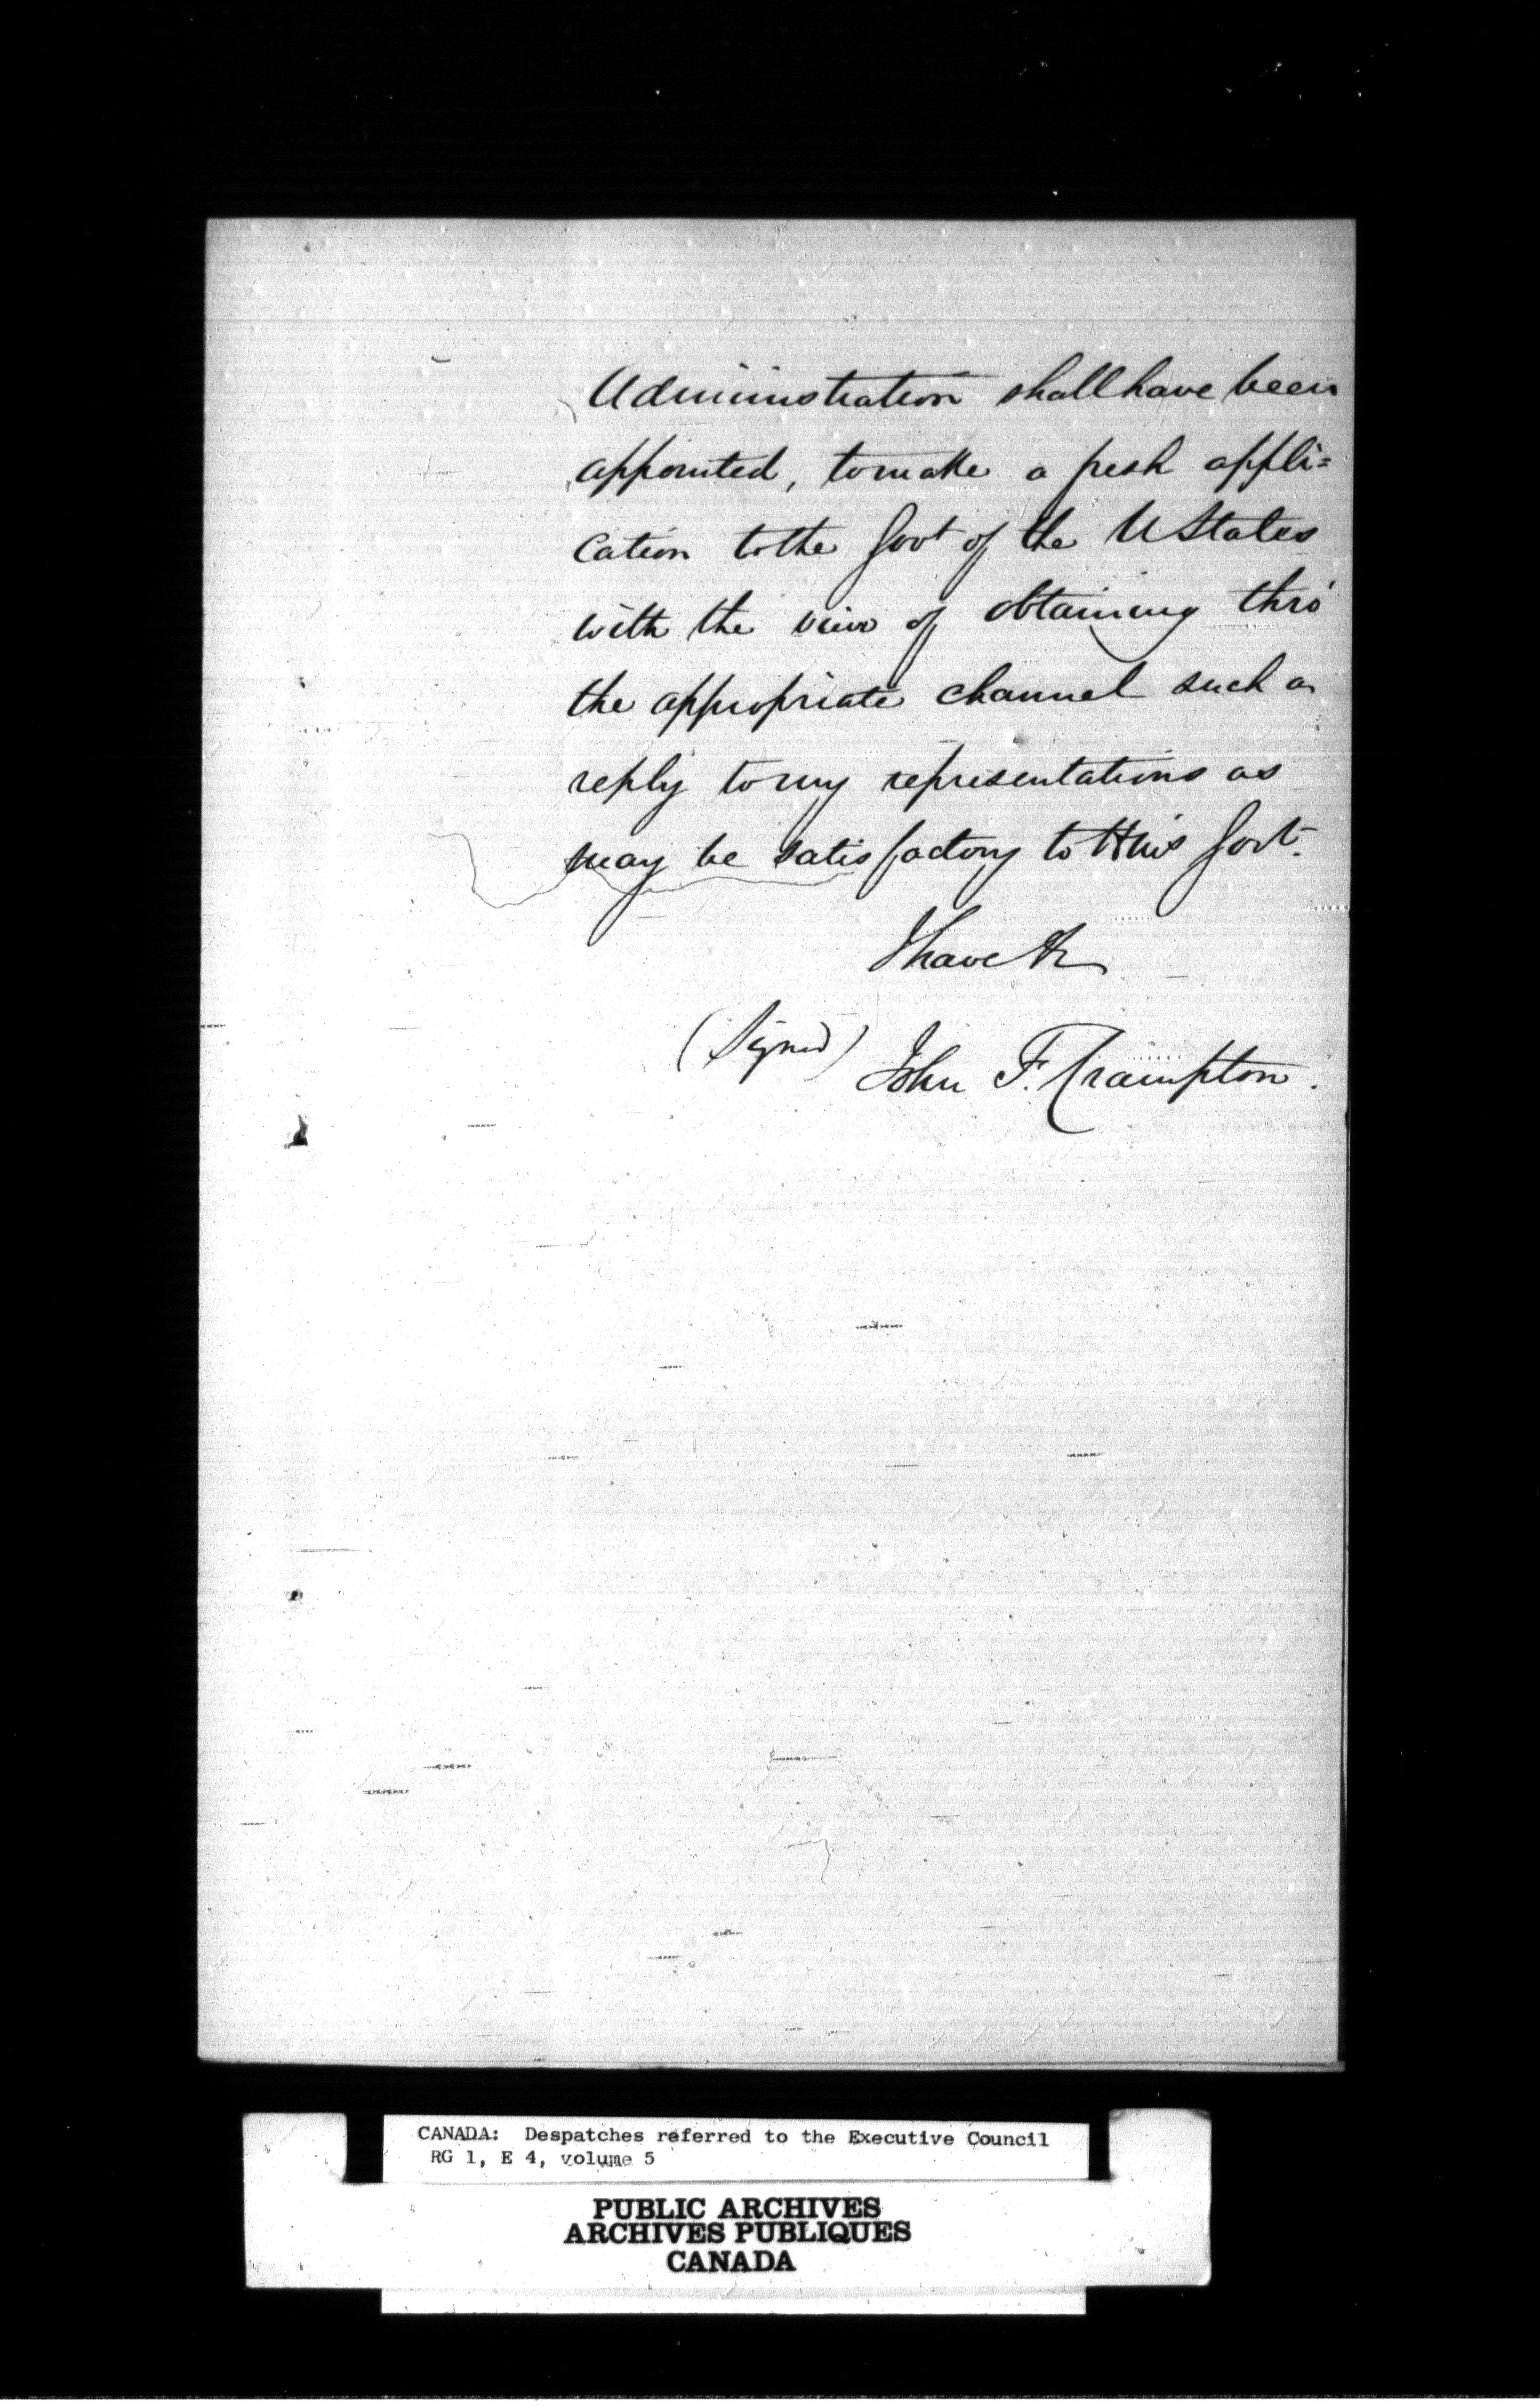 Administration shall have been
appointed, to make a fresh appli=
cation to the Govt of the U States
with the view of obtaining thro'
the appropriate channel such a
reply to my representations as
may be satisfactory to HMs Govt.
I have &c
(Signed) John F. Crampton.
CANADA: Despatches referred to the Executive Council
RG 1, E 4, volume 5
PUBLIC ARCHIVES
ARCHIVES PUBLIQUES
CANADA